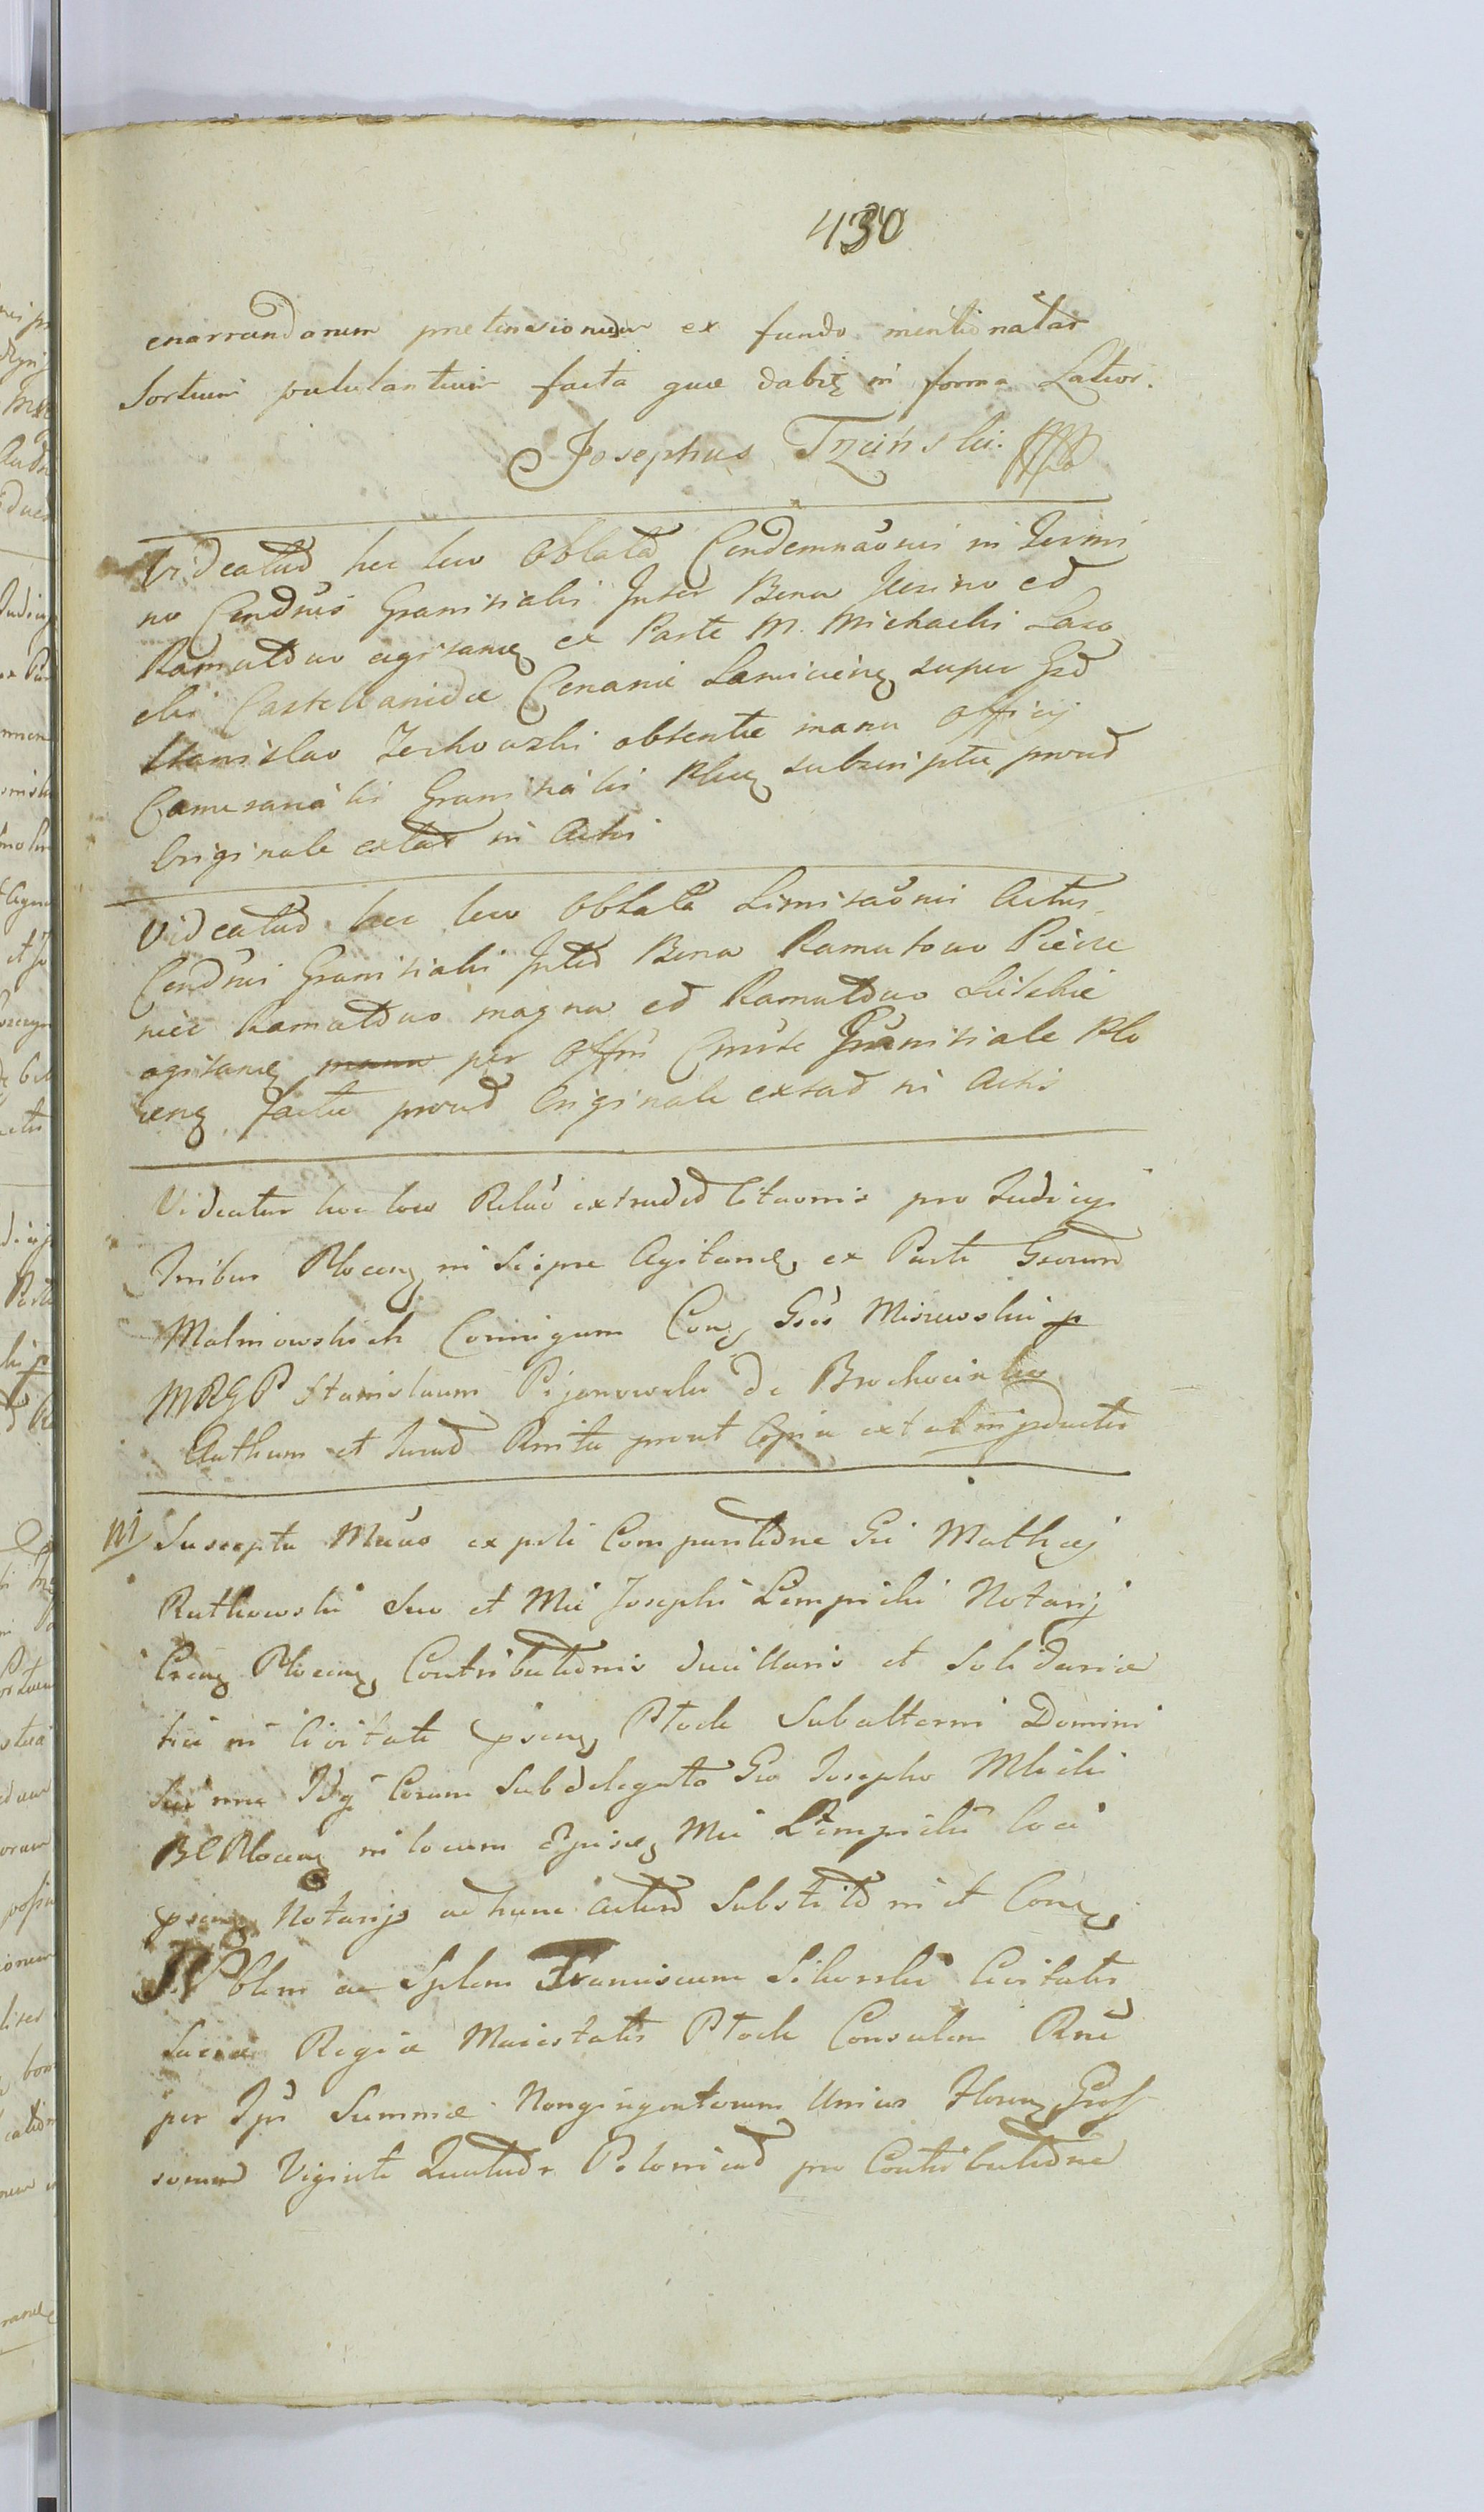 430
enarrandarum praetensionum ex fundo mentionatar
Sortium pululantium facta quae dabitz in forma Latior.
Josephus Trzciński
Videatur hoc loco Oblata Condemnaōnis in Termi
no Condnis Granitialis Inter Bona et
Ramutowo agitanẽ ex Parte M. Michaelis Laso
cki Castellanidae super Gsd
Stanislao Zochowski absentia manu Officij
Camerarialis Granicialis Plocẽ subscripta prout
Originale extat in Actis
Videatur hoc loco Oblata Limitaōnis Actus
Condnis Granicialis Inter Bona Ramutowo Piecze
niec Ramutowo magna et Ramutowo Lisickie
agitanẽ manu per Offm Granitiale Plo
cenẽ facta prout Originale extat in Actis
Videatur hoc loco Relaō extradit Citaonis pro Judicijs
Inibus Plocenẽ in Sierpc Agitandẽ ex Parte Gsorum
Malinowskich Conjugum Con Gsos Misiewskich p
MRGP Stanislaum Pijanowski de Brochocinko
Authum et Jurad Rnita prout Copia extat in productis
NJ Suscepta Maño ex psli Comparitione Gsi Mathaej
Rutkowski Suo et Mci Josephi Lempicki Notarij
Crens Plocenẽ Contributionis ducillaris et Solidaria
hic in Civitate psenẽ Plock Subalterni Domini
Sui nne Idq Coram Subdelegato Gso Josepho Mlicki
BC Plocenẽ in locum Mci Lempicki loci
psenẽ Notarijs ad hunc actum Substit in et Conẽ
Noblem ac Splem Franciscum Sikorski Civitatis
Sacrae Regiae Maiestatis Plock Consulem Rne
per Ipm Summae Nongingentorum Unius Floren Gros
sorum Viginti Quatuor Polonical pro Contributione